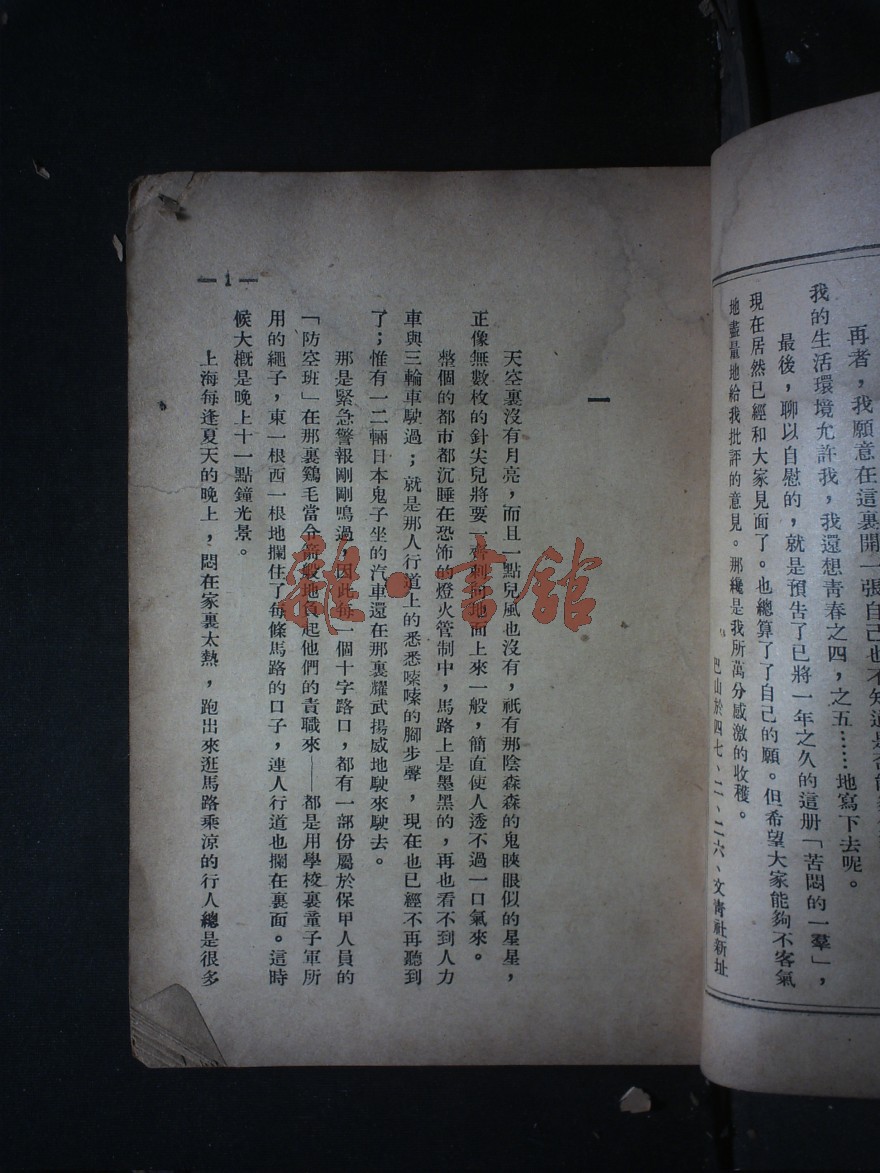 再者，我願意在這裏開一張自己也不知道是否能
我的生活環境允許我，我還想青春之四，之五……地寫下去呢。
最後，聊以自慰的，就是預告了已將一年之久的這册「苦悶的一羣」，
現在居然已經和大家見面了。也總算了了自己的願。但希望大家能夠不客氣
地盡量地給我批評的意見。那纔是我所萬分感激的收穫。
巴山於四七、二、二六、文青社新址
一
天空裏沒有月亮，而且一點兒風也沒有，祇有那陰森森的鬼䀹眼似的星星，
正像無數枚的針尖兒將要一齊刺向地面上來一般，簡直使人透不過一口氣來。
整個的都市都沉睡在恐怖的燈火管制中，馬路上是墨黑的，再也看不到人力
車與三輪車駛過；就是那人行道上的悉悉嗦嗦的脚步聲，現在也已經不再聽到
了；惟有一二輛日本鬼子坐的汽車還在那裏耀武揚威地駛來駛去。
那是緊急警報剛剛鳴過，因此每一個十字路口，都有一部份屬於保甲人員的
「防空班」在那裏鷄毛當令箭般地負起他們的責職來——都是用學校裏童子軍所
用的繩子，東一根西一根地攔住了每條馬路的口子，連人行道也攔在裏面。這時
候大槪是晚上十一點鐘光景。
上海每逢夏天的晚上，悶在家裏太熱，跑出來逛馬路乘涼的行人總是很多
— 1 —
雜·書館